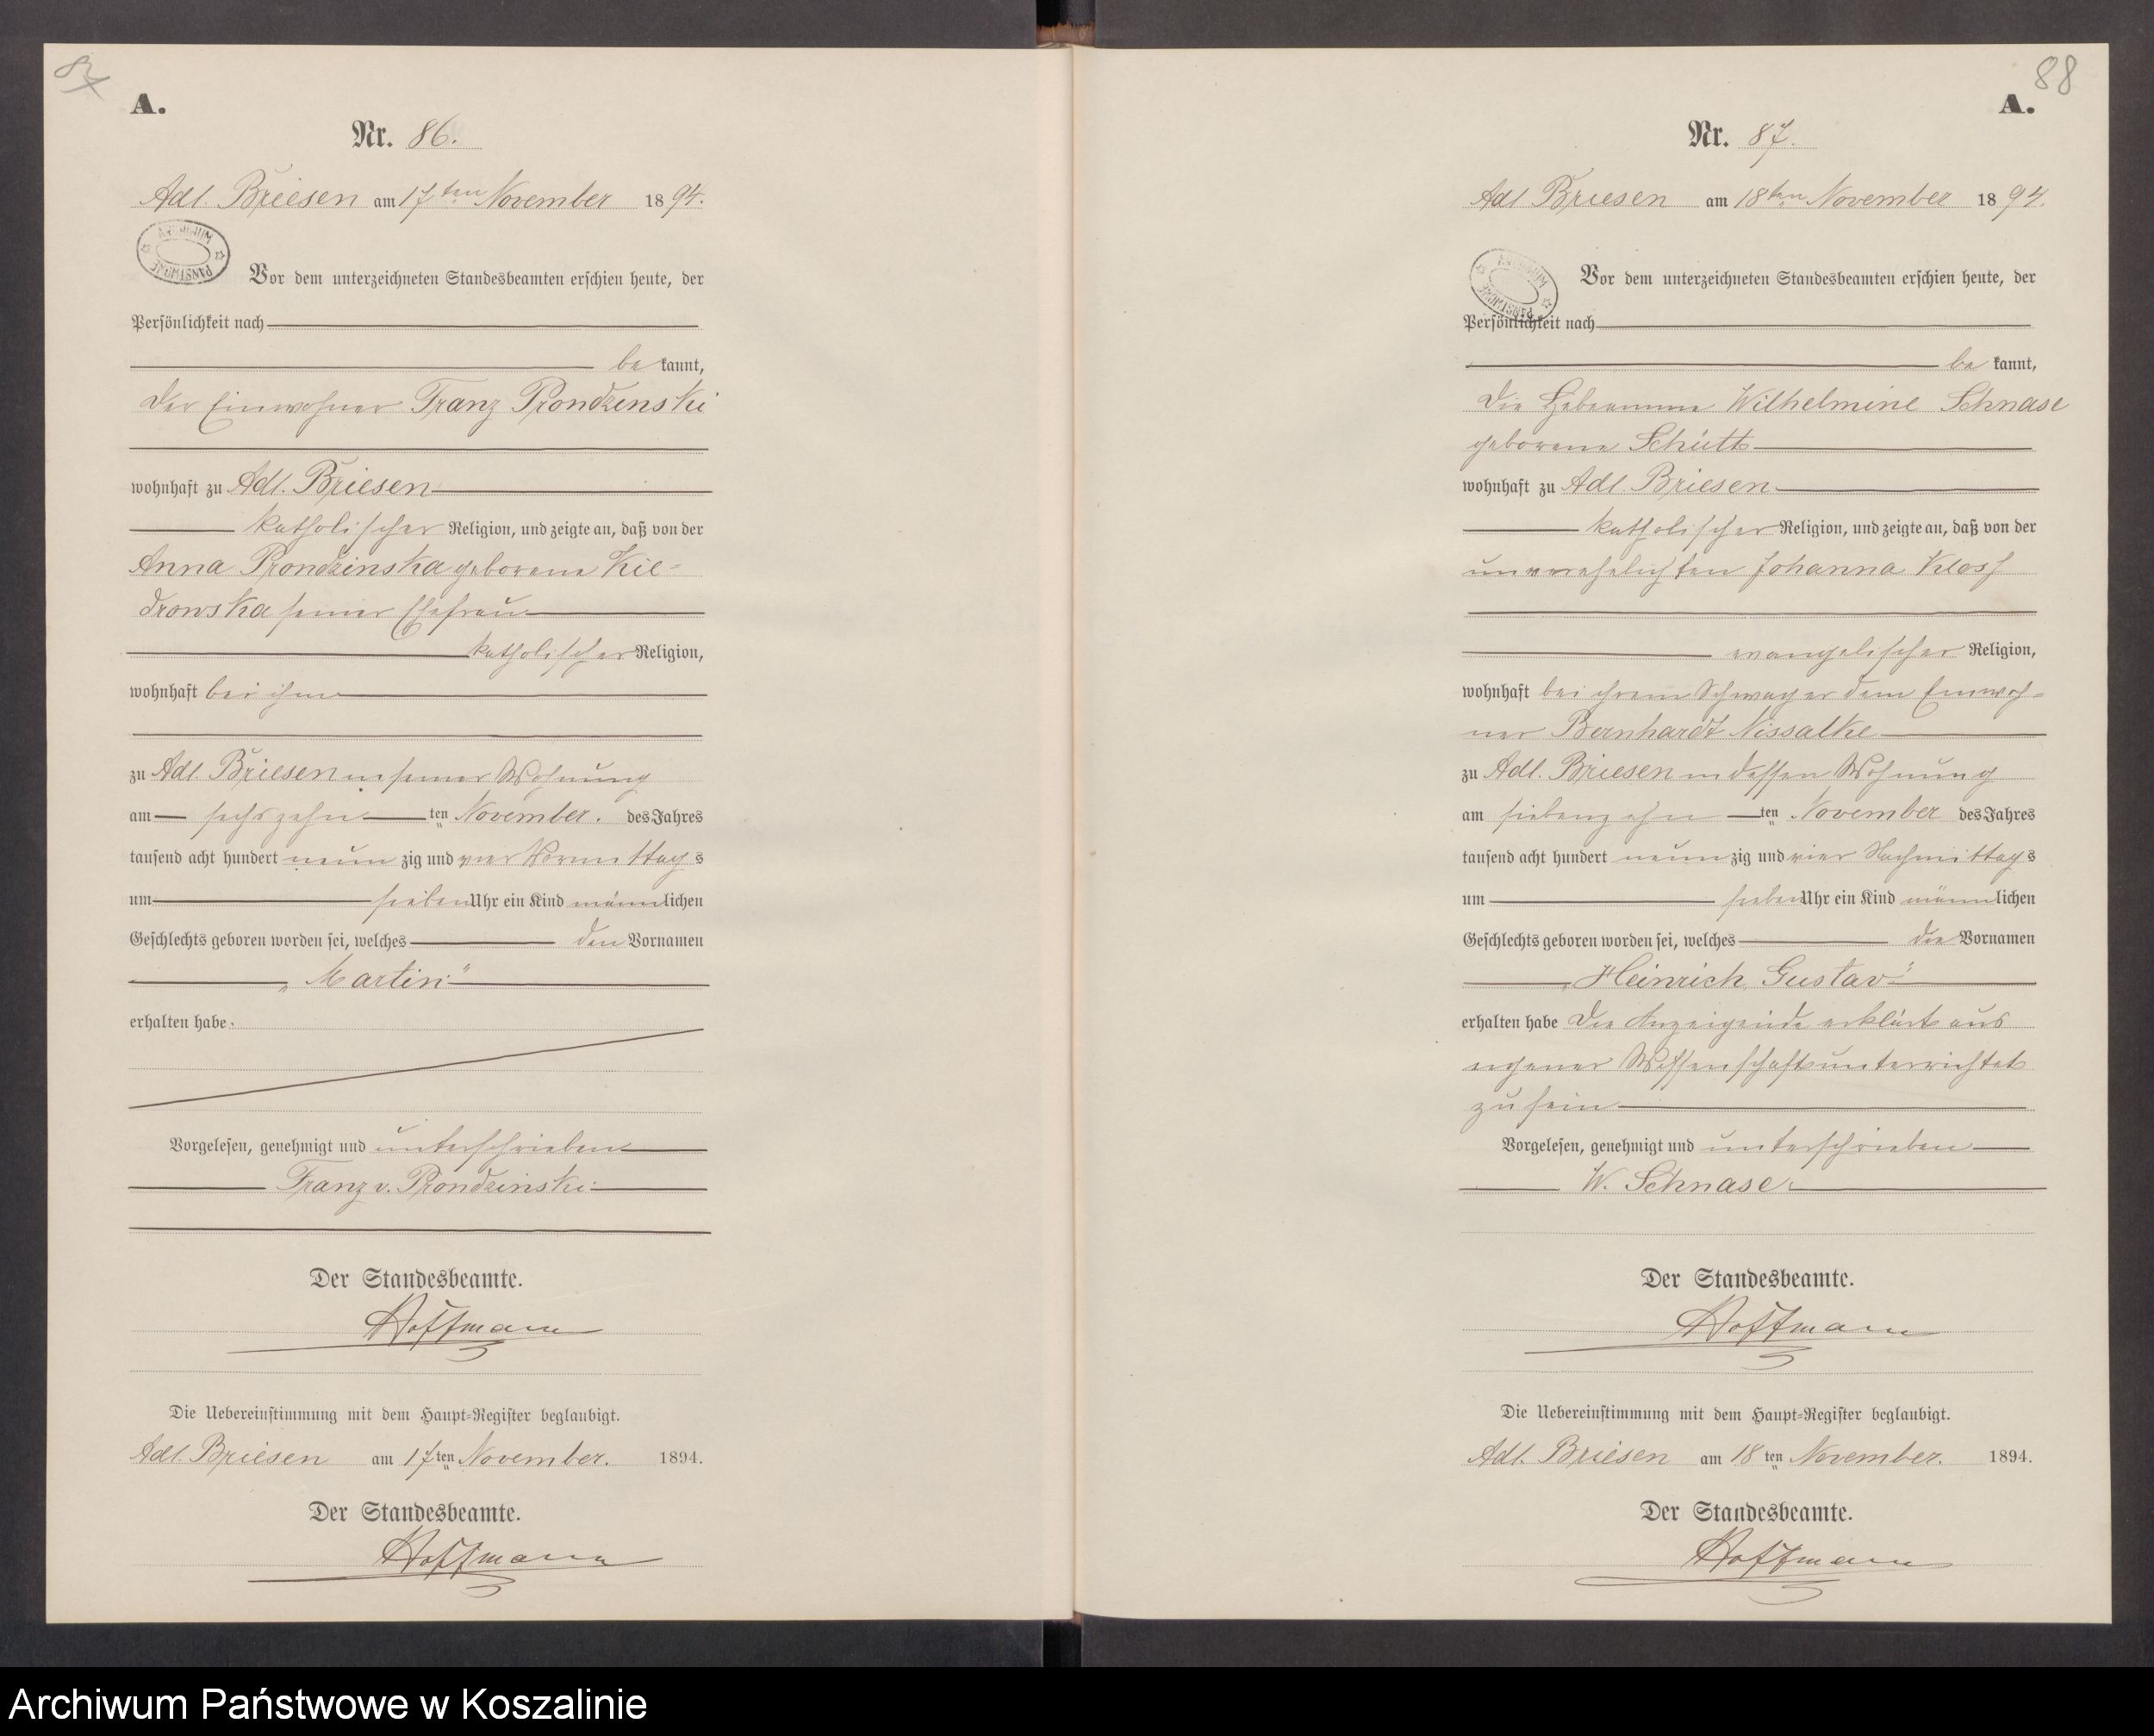 87
A.
Nr. 86.
Adl. Briesen am 17ten November 1894.
ARCHIWUM PAŃSTWOWE
Vor dem unterzeichneten Standesbeamten erschien heute, der
Persönlichkeit nach
be kannt,
der Einwohner Franz Prondzinski
wohnhaft zu Adl. Briesen
katholischer Religion, und zeigte an, daß von der
Anna Prondzinska geborene Kie-
drowska seiner Ehefrau
katholischer Religion,
wohnhaft bei ihm
zu Adl. Briesen in seiner Wohnung
am sechszehn ten November. des Jahres
tausend acht hundert neun zig und vier Vormittags
um sieben Uhr ein Kind männlichen
Geschlechts geboren worden sei, welches den Vornamen
„Martin“
erhalten habe.
Vorgelesen, genehmigt und unterschrieben
Franz v. Prondzinski
Der Standesbeamte.
Hoffmann
Die Uebereinstimmung mit dem Haupt-Register beglaubigt.
Adl. Briesen am 17ten November. 1894.
Der Standesbeamte.
Hoffmann
88
A.
Nr. 87.
Adl Briesen am 18ten November 1894.
ARCHIWUM PAŃSTWOWE
Vor dem unterzeichneten Standesbeamten erschien heute, der
Persönlichkeit nach
be kannt,
die Hebeamme Wilhelmine Schnase
geborene Schütt
wohnhaft zu Adl. Briesen
katholischer Religion, und zeigte an, daß von der
unverehelichten Johanna Kloss
evangelischer Religion,
wohnhaft bei ihrem Schwager dem Einwoh-
ner Bernhardt Nissalke
zu Adl. Briesen in dessen Wohnung
am siebenzehn ten November des Jahres
tausend acht hundert neun zig und vier Nachmittags
um sieben Uhr ein Kind männlichen
Geschlechts geboren worden sei, welches die Vornamen
„Heinrich Gustav“
erhalten habe Die Anzeigende erklärt aus
eigener Wissenschaft unterrichtet
zu sein
Vorgelesen, genehmigt und unterschrieben
W. Schnase.
Der Standesbeamte.
Hoffmann
Die Uebereinstimmung mit dem Haupt-Register beglaubigt.
Adl. Briesen am 18 ten November. 1894.
Der Standesbeamte.
Hoffmann
Archiwum Państwowe w Koszalinie